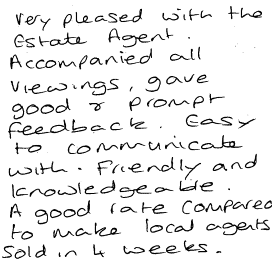 very pleased with the
Estate Agent.
Accompanied all
viewings, gave
good & prompt
feedback. Easy
to communicate
with. Friendly and
knowledgeable.
A good rate compared
to make local agents
Sold in 4 weeks.